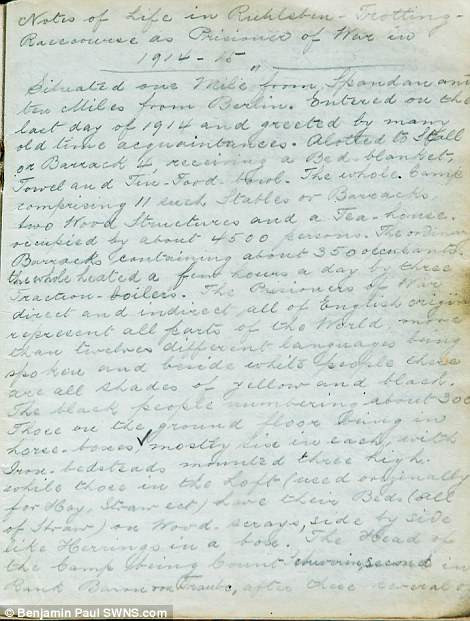 Notes of Life in Ruhleben - Trotting -
Racecourse as Prisoner of War in
1914 - 15
Situated one Mile from Spandau and
ten Miles from Berlin. Entered on the
last day of 1914 and greeted by many
old time acquaintances. Alotted to Stall
or Barrack 4, receiving a Bed-blanket,
Towel and Tin-Food-bowl. The whole Camp
comprising 11 such Stables or Barracks
two Wood Structures and a Tea-house.
occupied by about 4500 persons. The ordinary
Barracks containing about 350 occupants.
the whole heated a few hours a day by three
Traction-boilers. The Prisoners of War
direct and indirect, all of English origin
represent all parts of the World, more
than twelve different languages being
spoken and beside white people there
are all shades of yellow and black.
The black people numbering about 300
Those on the ground floor being in
horse-boxes, mostly six in each, with
Iron-bedsteads mounted three high.
while those in the Loft (used originally
for Hay, Straw ect) have their Beds (all
of Straw) on Wood, side by side
like Herrings in a box. The Head of
the Camp being Count second in
Rank Baron von Taube, after these several
© Benjamin Paul SWNS.com